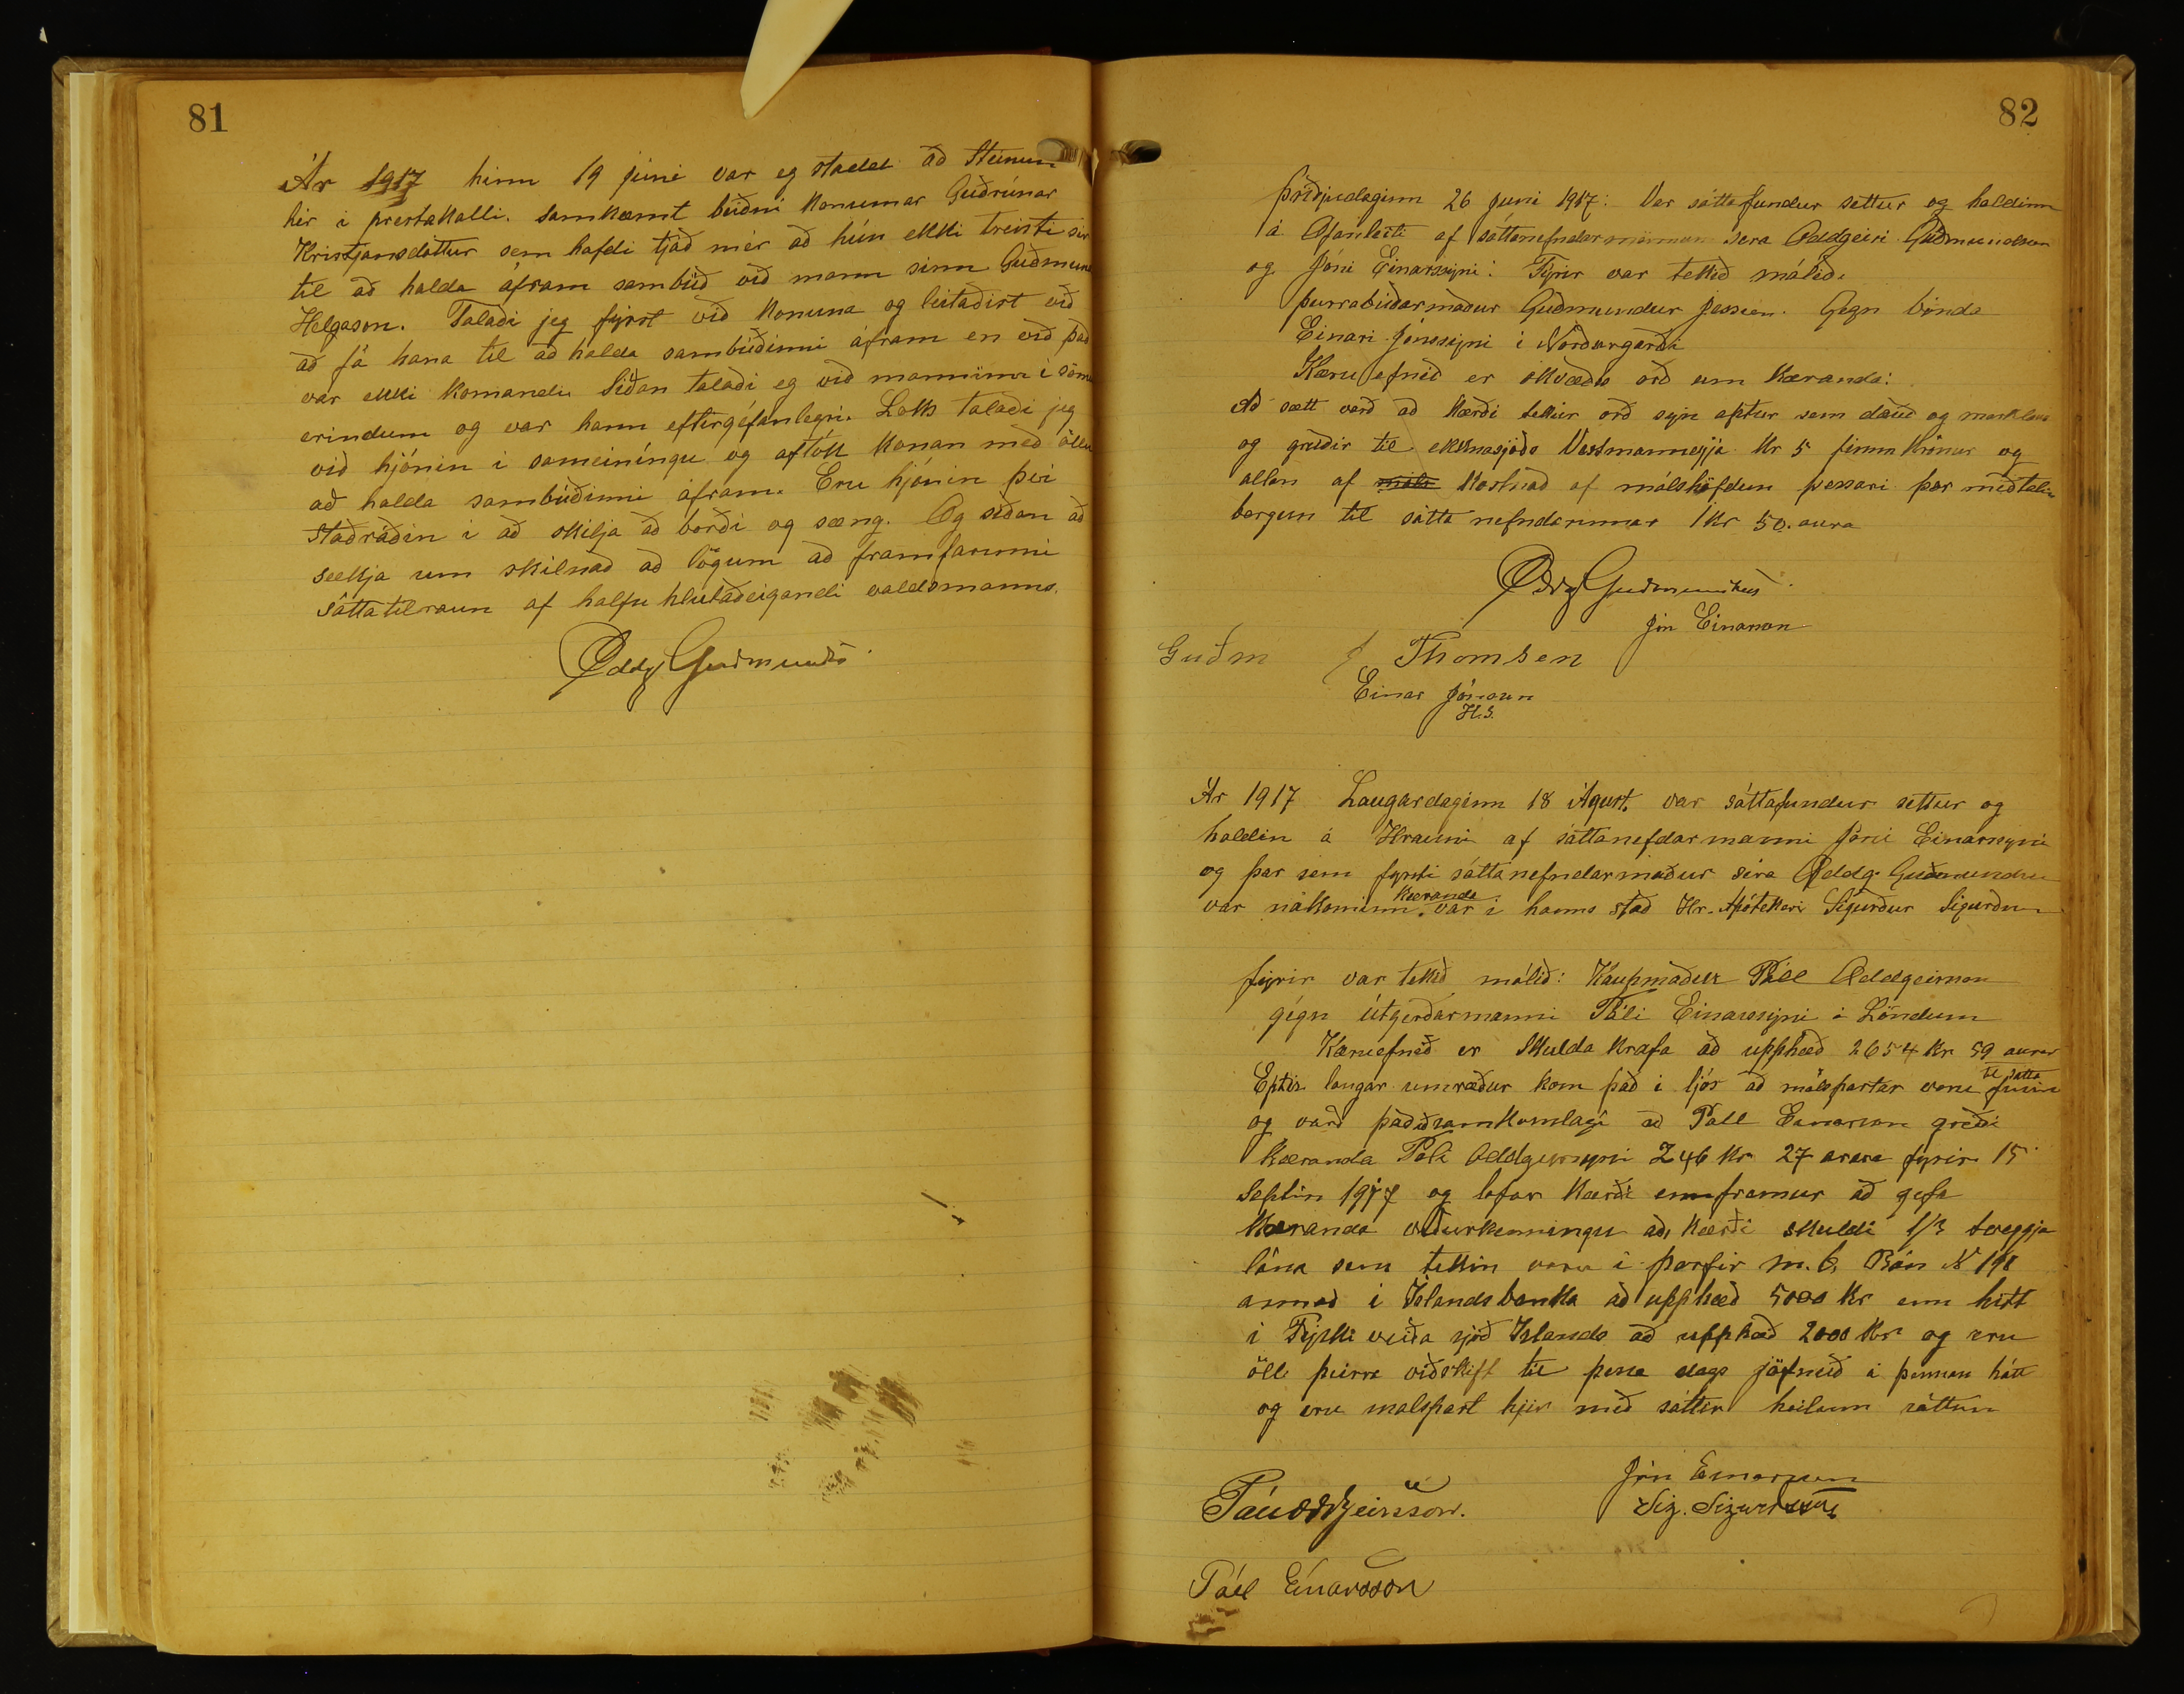 81
Ár 1917 hinn 19 júni var eg stadd að Steinum
hér i prestakalli. samkæmt beiðni konunnar Guðrúnar
Kristjansdóttur sem hafdi tjáð mér að hún ekki treisti sér
til að halda áfram sambúð við mann sinn Guðmund
Helgason. Talaði jeg fyrst við konuna og leitaðist við
að fá hana til að halda sambúðinni áfram en við það
var ekki komandi. Siðan talaði eg við manninn i sömu
erindum og var hann eftirgéfanlegri. Loks talaði jeg
við hjónin i sameiníngu og aftók konan með öllu
að halda sambúðinni áfram. Eru hjónin því
staðráðin i að skilja að borði og sæng. Og siðan að
sækja um skilnað að lögum að framfarinni
sáttatilraun af halfu hlutaðeigandi valdsmanns.
Oddg Guðmunds
82
Þriðjudaginn 26 juni 1917: Var sáttafundur settur og haldinn
á Ofanleiti af sáttanefndarmönnum séra Oddgeiri Guðmundsen
og Jóni Einarssyni: Fyrir var tekið málið.
þurrabúðarmaður Guðmundur Gegn bónda
Einari Jónssyni i Norðurgarði
Kæruefnið er skvæðis orð um kæranda:
Að sætt varð að kærði tekur orð sýn aptur sem dauð og marklaus
og greiðir til ekknasjóðs Vestmanneyja kr 5 fimm krónur og
allan af kostnað af málshöfdun þessari þar með talin
borgun til sátta nefndarinnar 1 kr 50. aura
Oddg Guðmundsen
Jón Einarson
Guðm J Thomsen
Einar Jónsson
H.S.
Ár 1917 Laugardaginn 18 Agust. var sáttafundur settur og
haldin á Hrauni af sáttanefdarmanni Jóni Einarssyni
og þar sem fyrsti sáttanefndarmaður séra Oddg. Guðmundsen
var nákominn kæranda var i hanns stað Hr. Apótekari Sigurður Sigurðsson
fyrir var tekið málið: Kaupmaður Páll Oddgeirsson
gégn útgerðarmanni Páli Einarssyni á Löndum
Kæruefnið er Skulda krafa að upphæð 2654 kr 59 aurar
Eptir langar umræður kom það i ljós að málspartar voru til sátta fúsir
og varð það að samkomulagi að Páll Einarsson greiði
kæranda Páli Oddgeirssyni 246 kr 27 aura fyrir 15
Septbr 1917 og lofar kærði ennfremur að gefa
kæranda viðurkenningu að, kærði skuldi 1/3 tveggja
lána sem tekin voru i þarfir m.b. Rán No 198
annað i Íslandsbanka að upphæð 5000 kr enn hitt
i Fiski veiða sjóð Islands að upphæð 2000 kr og eru
öll þeirra viðskift til þessa dags jöfnuð á þennan hátt
og eru malspart hjer með sáttir heilum sáttum
Jón Einarsson
Páll Oddgeirsson.
Sig. Sigurdsson
Páll Einarsson